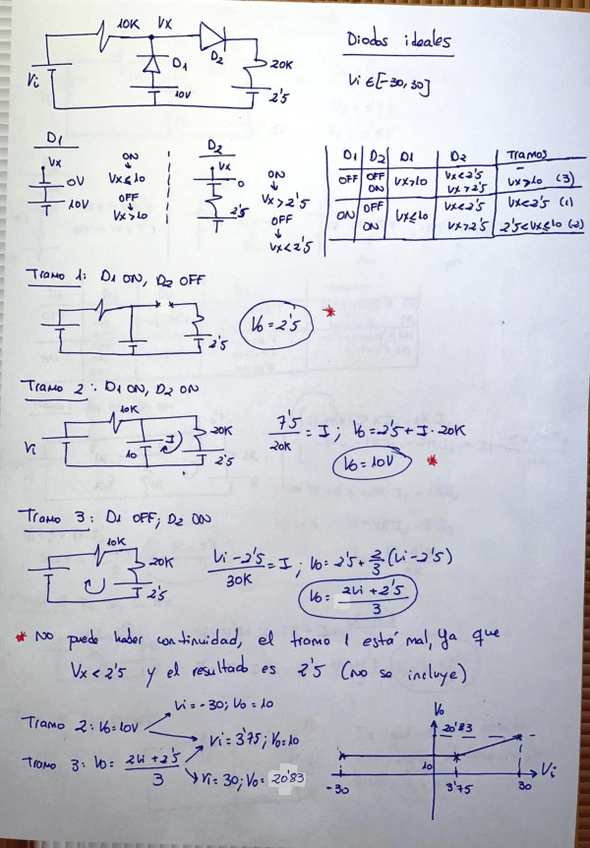 10K Vx
D1 D2 20K
Vi 10V 2'5
Diodos ideales
Vi ∈ [-30, 30]
D1
Vx
0V
10V
ON
↓
Vx ≤ 10
OFF
↓
Vx > 10
D2
Vx
0
2'5
ON
↓
Vx > 2'5
OFF
↓
Vx < 2'5
D1 D2 D1 D2 Tramos
OFF OFF Vx > 10 Vx < 2'5 –
ON Vx > 2'5 Vx > 10 (3)
ON OFF Vx ≤ 10 Vx < 2'5 Vx < 2'5 (1)
ON Vx > 2'5 2'5 < Vx ≤ 10 (2)
Tramo 1: D1 ON, D2 OFF
2'5
Vo = 2'5 *
Tramo 2: D1 ON, D2 ON
10K
Vi 10 I 20K
2'5
7'5/20K = I; Vo = 2'5 + I · 20K
Vo = 10V *
Tramo 3: D1 OFF; D2 ON
10K
20K
2'5
Vi - 2'5/30K = I; Vo = 2'5 + 2/3 (Vi - 2'5)
Vo = 2Vi + 2'5/3
* No puede haber continuidad, el tramo 1 está mal, ya que
Vx < 2'5 y el resultado es 2'5 (No se incluye)
Vi = -30; Vo = 10
Tramo 2: Vo = 10V
Vi = 3'75; Vo = 10
Tramo 3: Vo = 2Vi + 2'5/3
Vi = 30; Vo = 20'83
Vo
20'83
10
Vi
-30 3'75 30